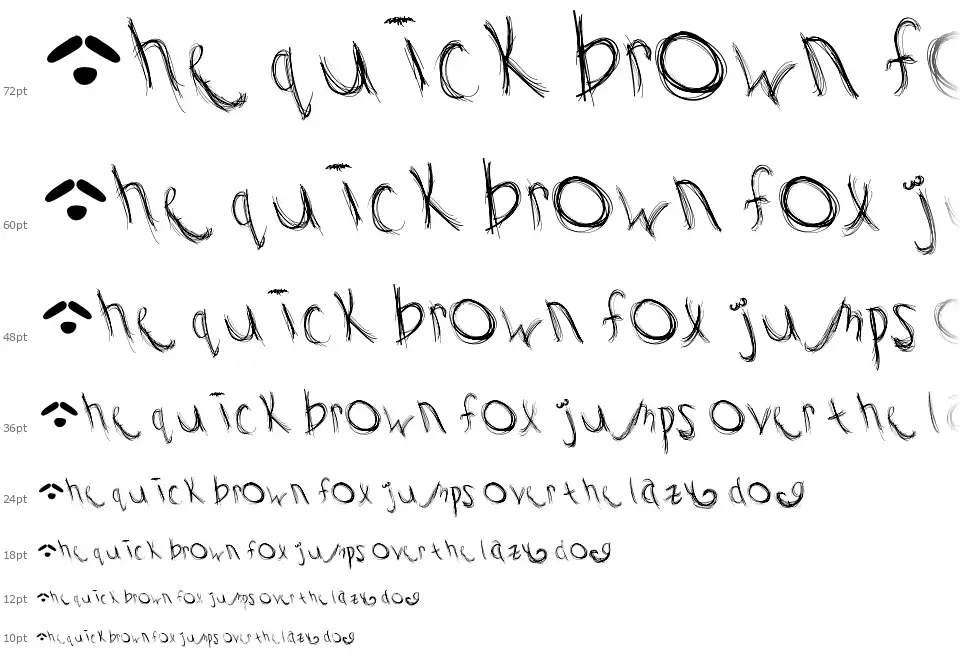 72pt he quick brown fo
60pt he quick brown fox j
48pt he quick brown fox jumps o
36pt he quick brown fox jumps over the la
24pt he quick brown fox jumps over the lazy dog
18pt he quick brown fox jumps over the lazy dog
12pt he quick brown fox jumps over the lazy dog
10pt he quick brown fox jumps over the lazy dog